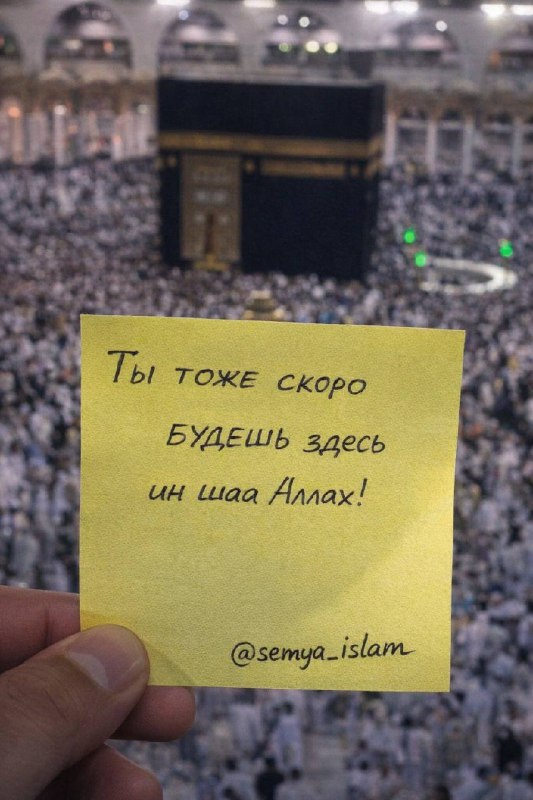 Ты тоже скоро
будешь здесь
ин шаа Аллах!
@semya_islam